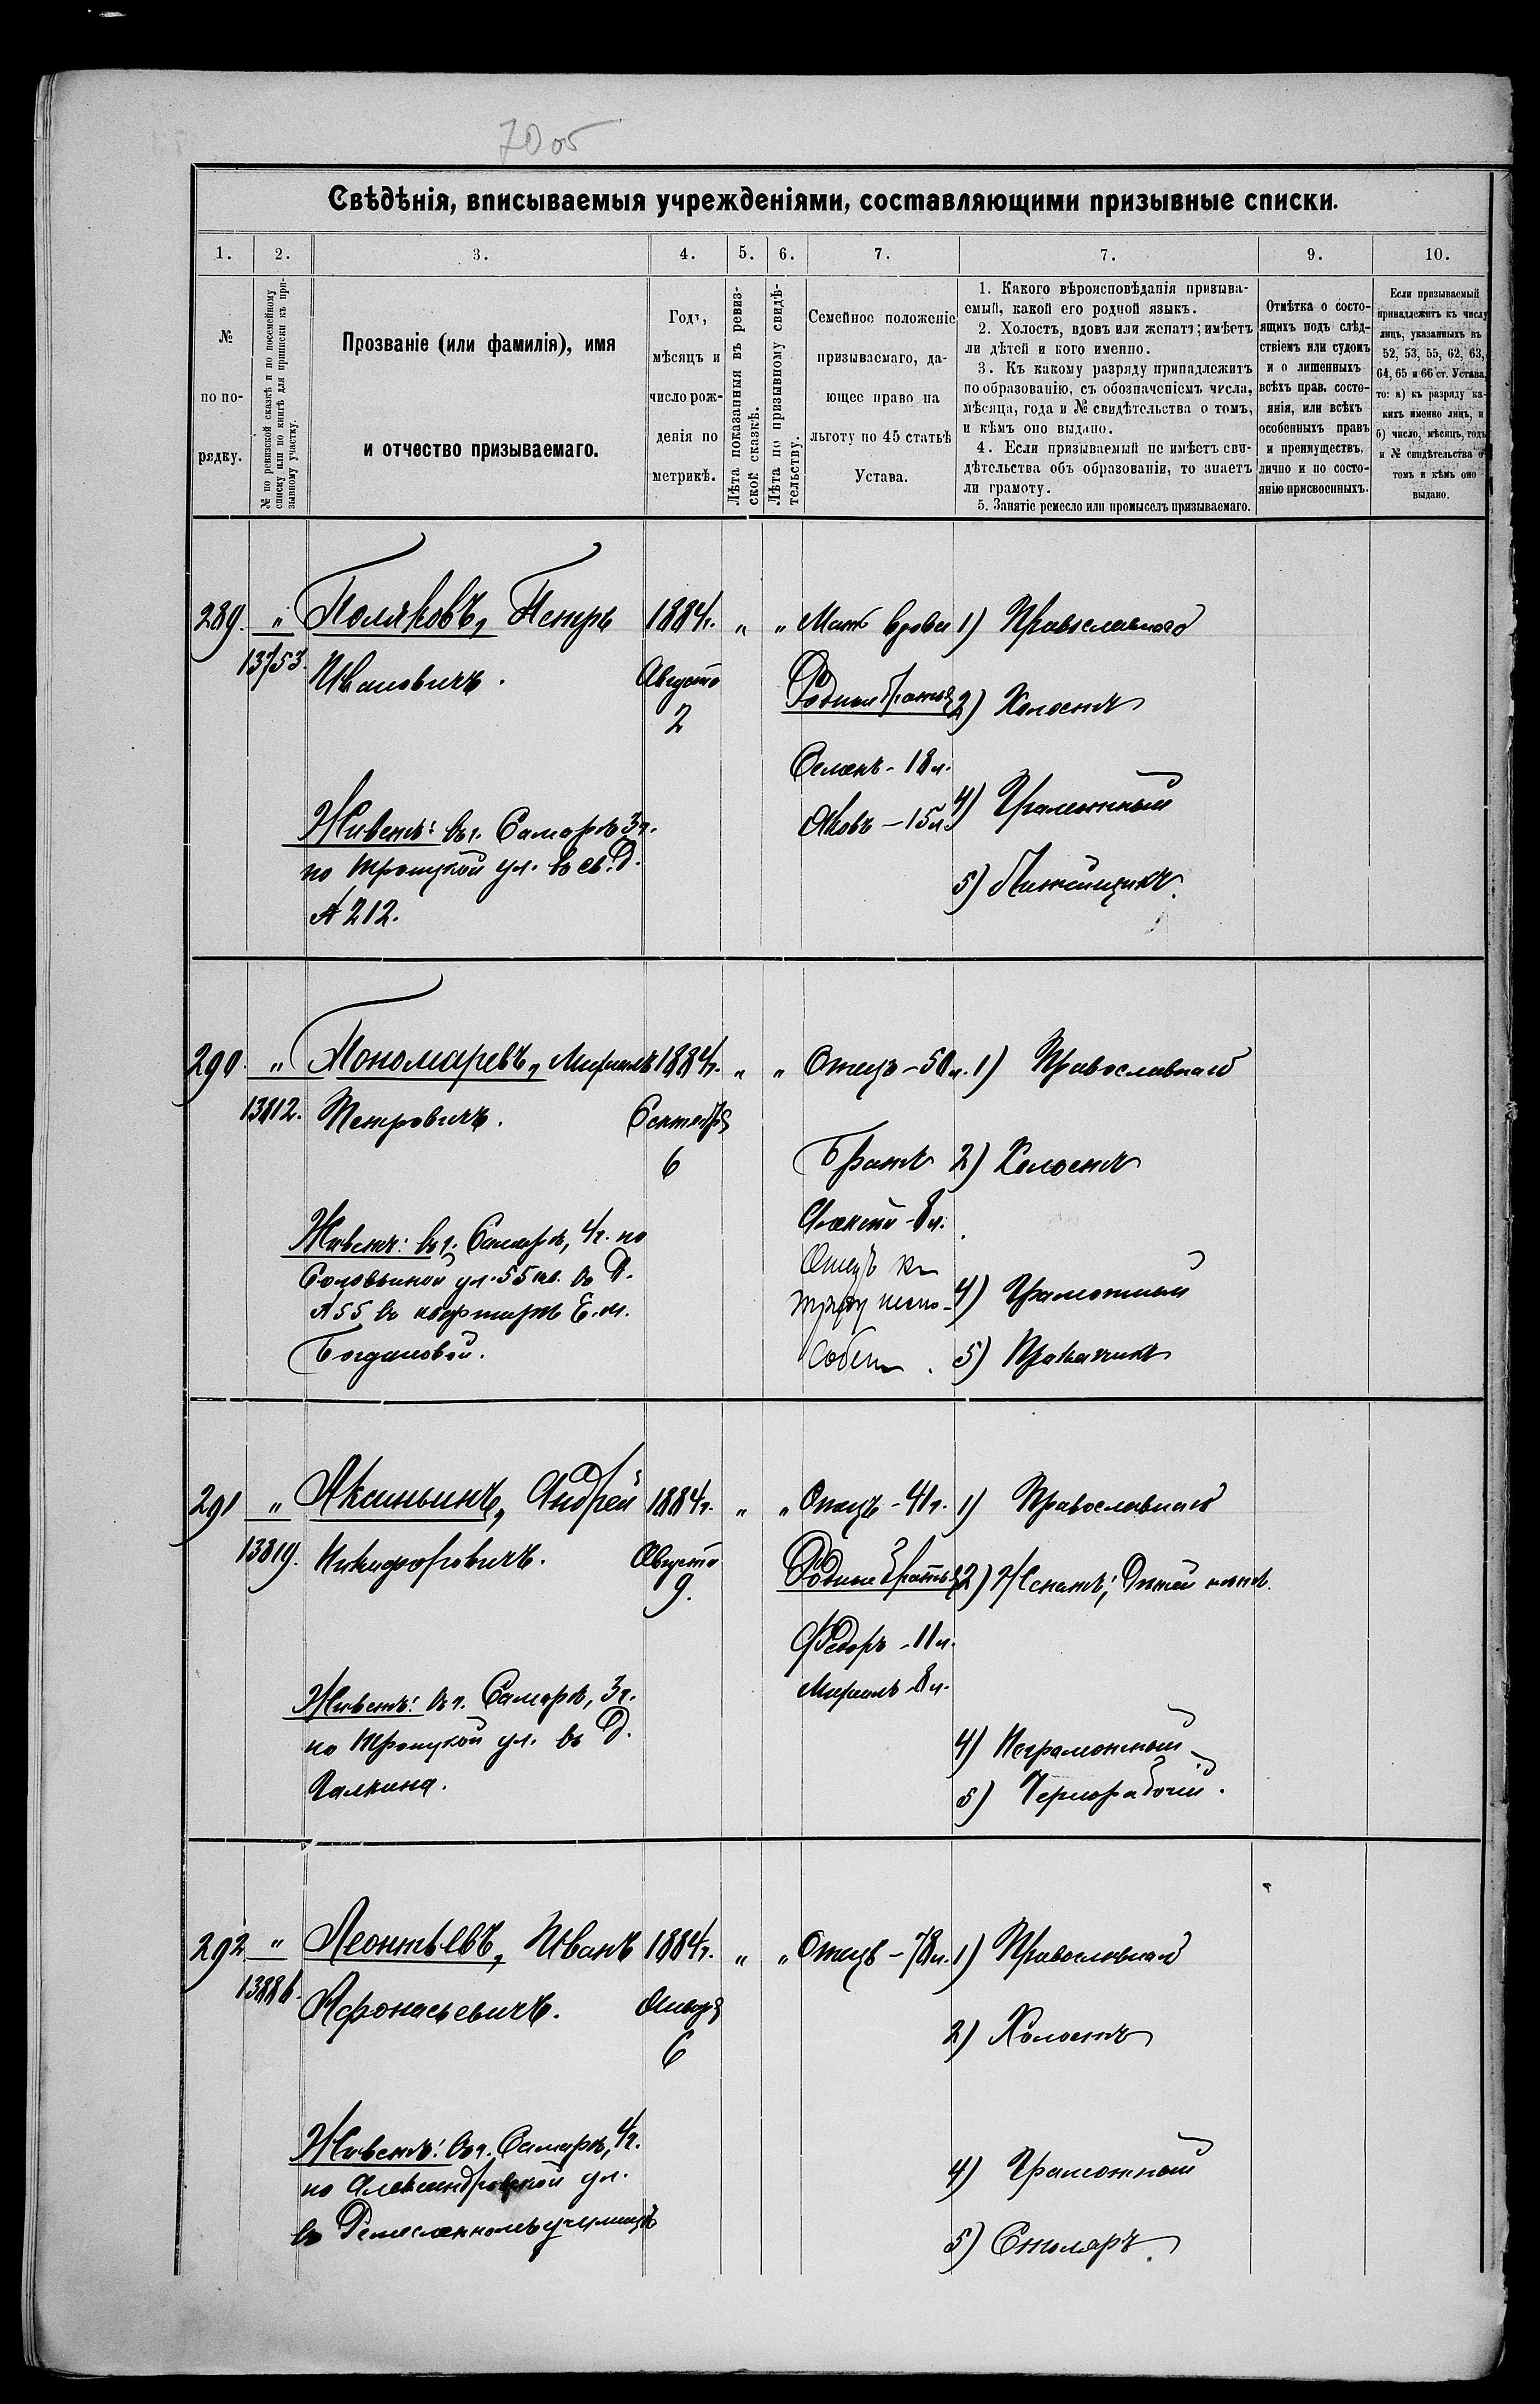 70 об
Свѣдѣнія, вписываемыя учрежденіями, составляющими призывные списки.
1. 2. 3. 4. 5. 6. 7. 7. 9. 10.
№ по по-рядку.
№ по ревизской сказкѣ и по посемейному списку или по книгѣ для приписки къ призывному участку.
Прозваніе (или фамилія), имя
и отчество призываемаго.
Годъ,
мѣсяцъ и
число рож-
денія по
метрикѣ.
Лѣта показанныя въ ревиз-
ской сказкѣ.
Лѣта по призывному свидѣ-
тельству.
Семейное положеніе
призываемаго, да-
ющее право на
льготу по 45 статьѣ
Устава.
1. Какого вѣроисповѣданія призыва-
емый, какой его родной языкъ.
2. Холостъ, вдовъ или женатъ; имѣетъ
ли дѣтей и кого именно.
3. Къ какому разряду принадлежитъ
по образованію, съ обозначеніемъ числа,
мѣсяца, года и № свидѣтельства о томъ,
и кѣмъ оно выдано.
4. Если призываемый не имѣетъ сви-
дѣтельства объ образованіи, то знаетъ
ли грамоту.
5. Занятіе ремесло или промыселъ призываемаго.
Отмѣтка о состо-
ящихъ подъ слѣд-
ствіемъ или судомъ
и о лишенныхъ
всѣхъ прав. состо-
янія, или всѣхъ
особенныхъ правъ
и преимуществъ,
лично и по состо-
янію присвоенныхъ.
Если призываемый
принадлежитъ къ числу
лицъ, указанныхъ въ
52, 53, 55, 62, 63,
64, 65 и 66 ст. Устава,
то: а) къ разряду ка-
кихъ именно лицъ, и
б) число, мѣсяцъ, годъ
и № свидѣтельства о
томъ и кѣмъ оно
выдано.
289. " Поляковъ, Петръ 1884г. " " Мать вдова 1) Православнаго
13753. Ивановичъ. Августа
2
Родные братья 2) Холостъ
18 л.
Яковъ - 15 л. 4) Грамотный
Живетъ: въ г. Самарѣ 3 ч.
по Троицкой ул. въ св. д.
№ 212.
5)
290. " Пономаревъ, Михаилъ 1884г. " " Отецъ - 50 л. 1) Православнаго
13812. Петровичъ. Сентября
6
Братъ 2) Холостъ
Алексѣй - 8 л.
Отецъ къ
труду неспо-
собенъ.
4) Грамотный
5) Приказчикъ
Живетъ: въ г. Самарѣ, 4 ч. по
Соловьиной ул. 55 кв. въ д.
№ 55 въ квартирѣ Е. М.
Богдановой.
291 " Аксиньинъ, Андрей 1884г. " " Отецъ - 41 г. 1) Православнаго
13819. Никифоровичъ. Августа
9.
Родные братья 2) Женатъ; дѣтей нѣтъ.
Федоръ - 11 л.
Михаилъ - 8 л.
Живетъ: въ г. Самарѣ, 3 ч.
по Троицкой ул. въ д.
Галкина.
4) Неграмотный
5) Чернорабочій.
292. " Леонтьевъ, Иванъ 1884г. " " Отецъ - 78 л. 1) Православнаго
13886. Афонасьевичъ. Января
6
2) Холостъ
Живетъ: въ г. Самарѣ, 4 ч.
по Александровской ул.
въ Ремесленномъ училищѣ
4) Грамотный
5) Столяръ.